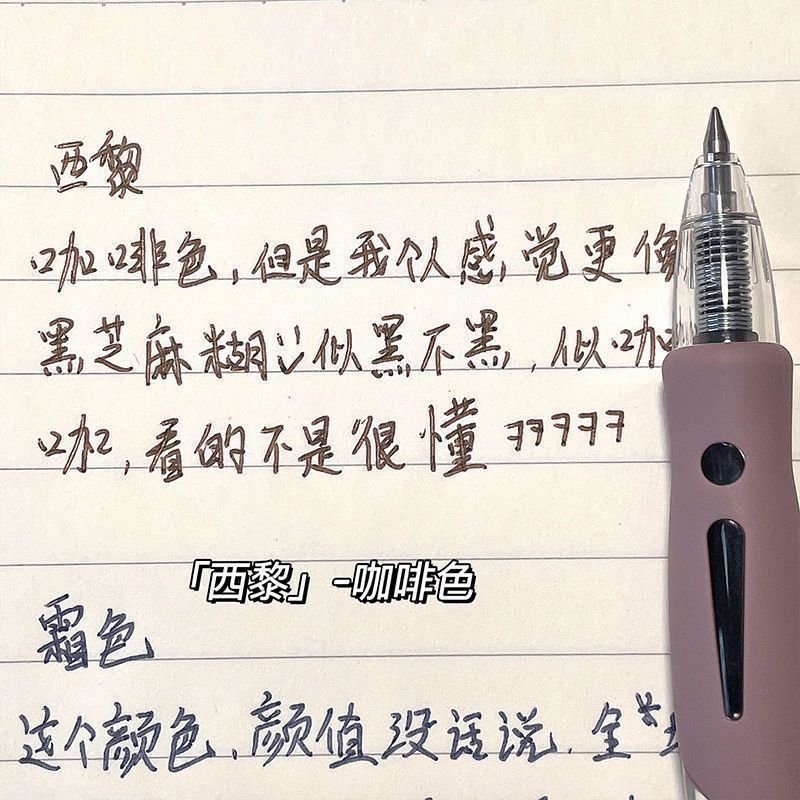 西黎
咖啡色,但是我个人感觉更像
黑芝麻糊 似黑不黑,似咖
咖,看的不是很懂 77777
「西黎」-咖啡色
霜色
这个颜色,颜值没话说.全